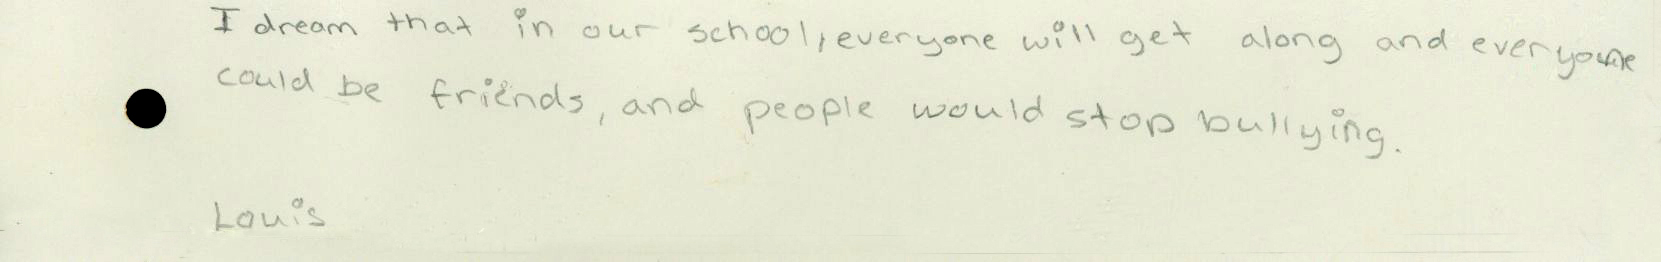 I dream that in our school, everyone will get along and everyone
could be friends, and people would stop bullying.
Louis